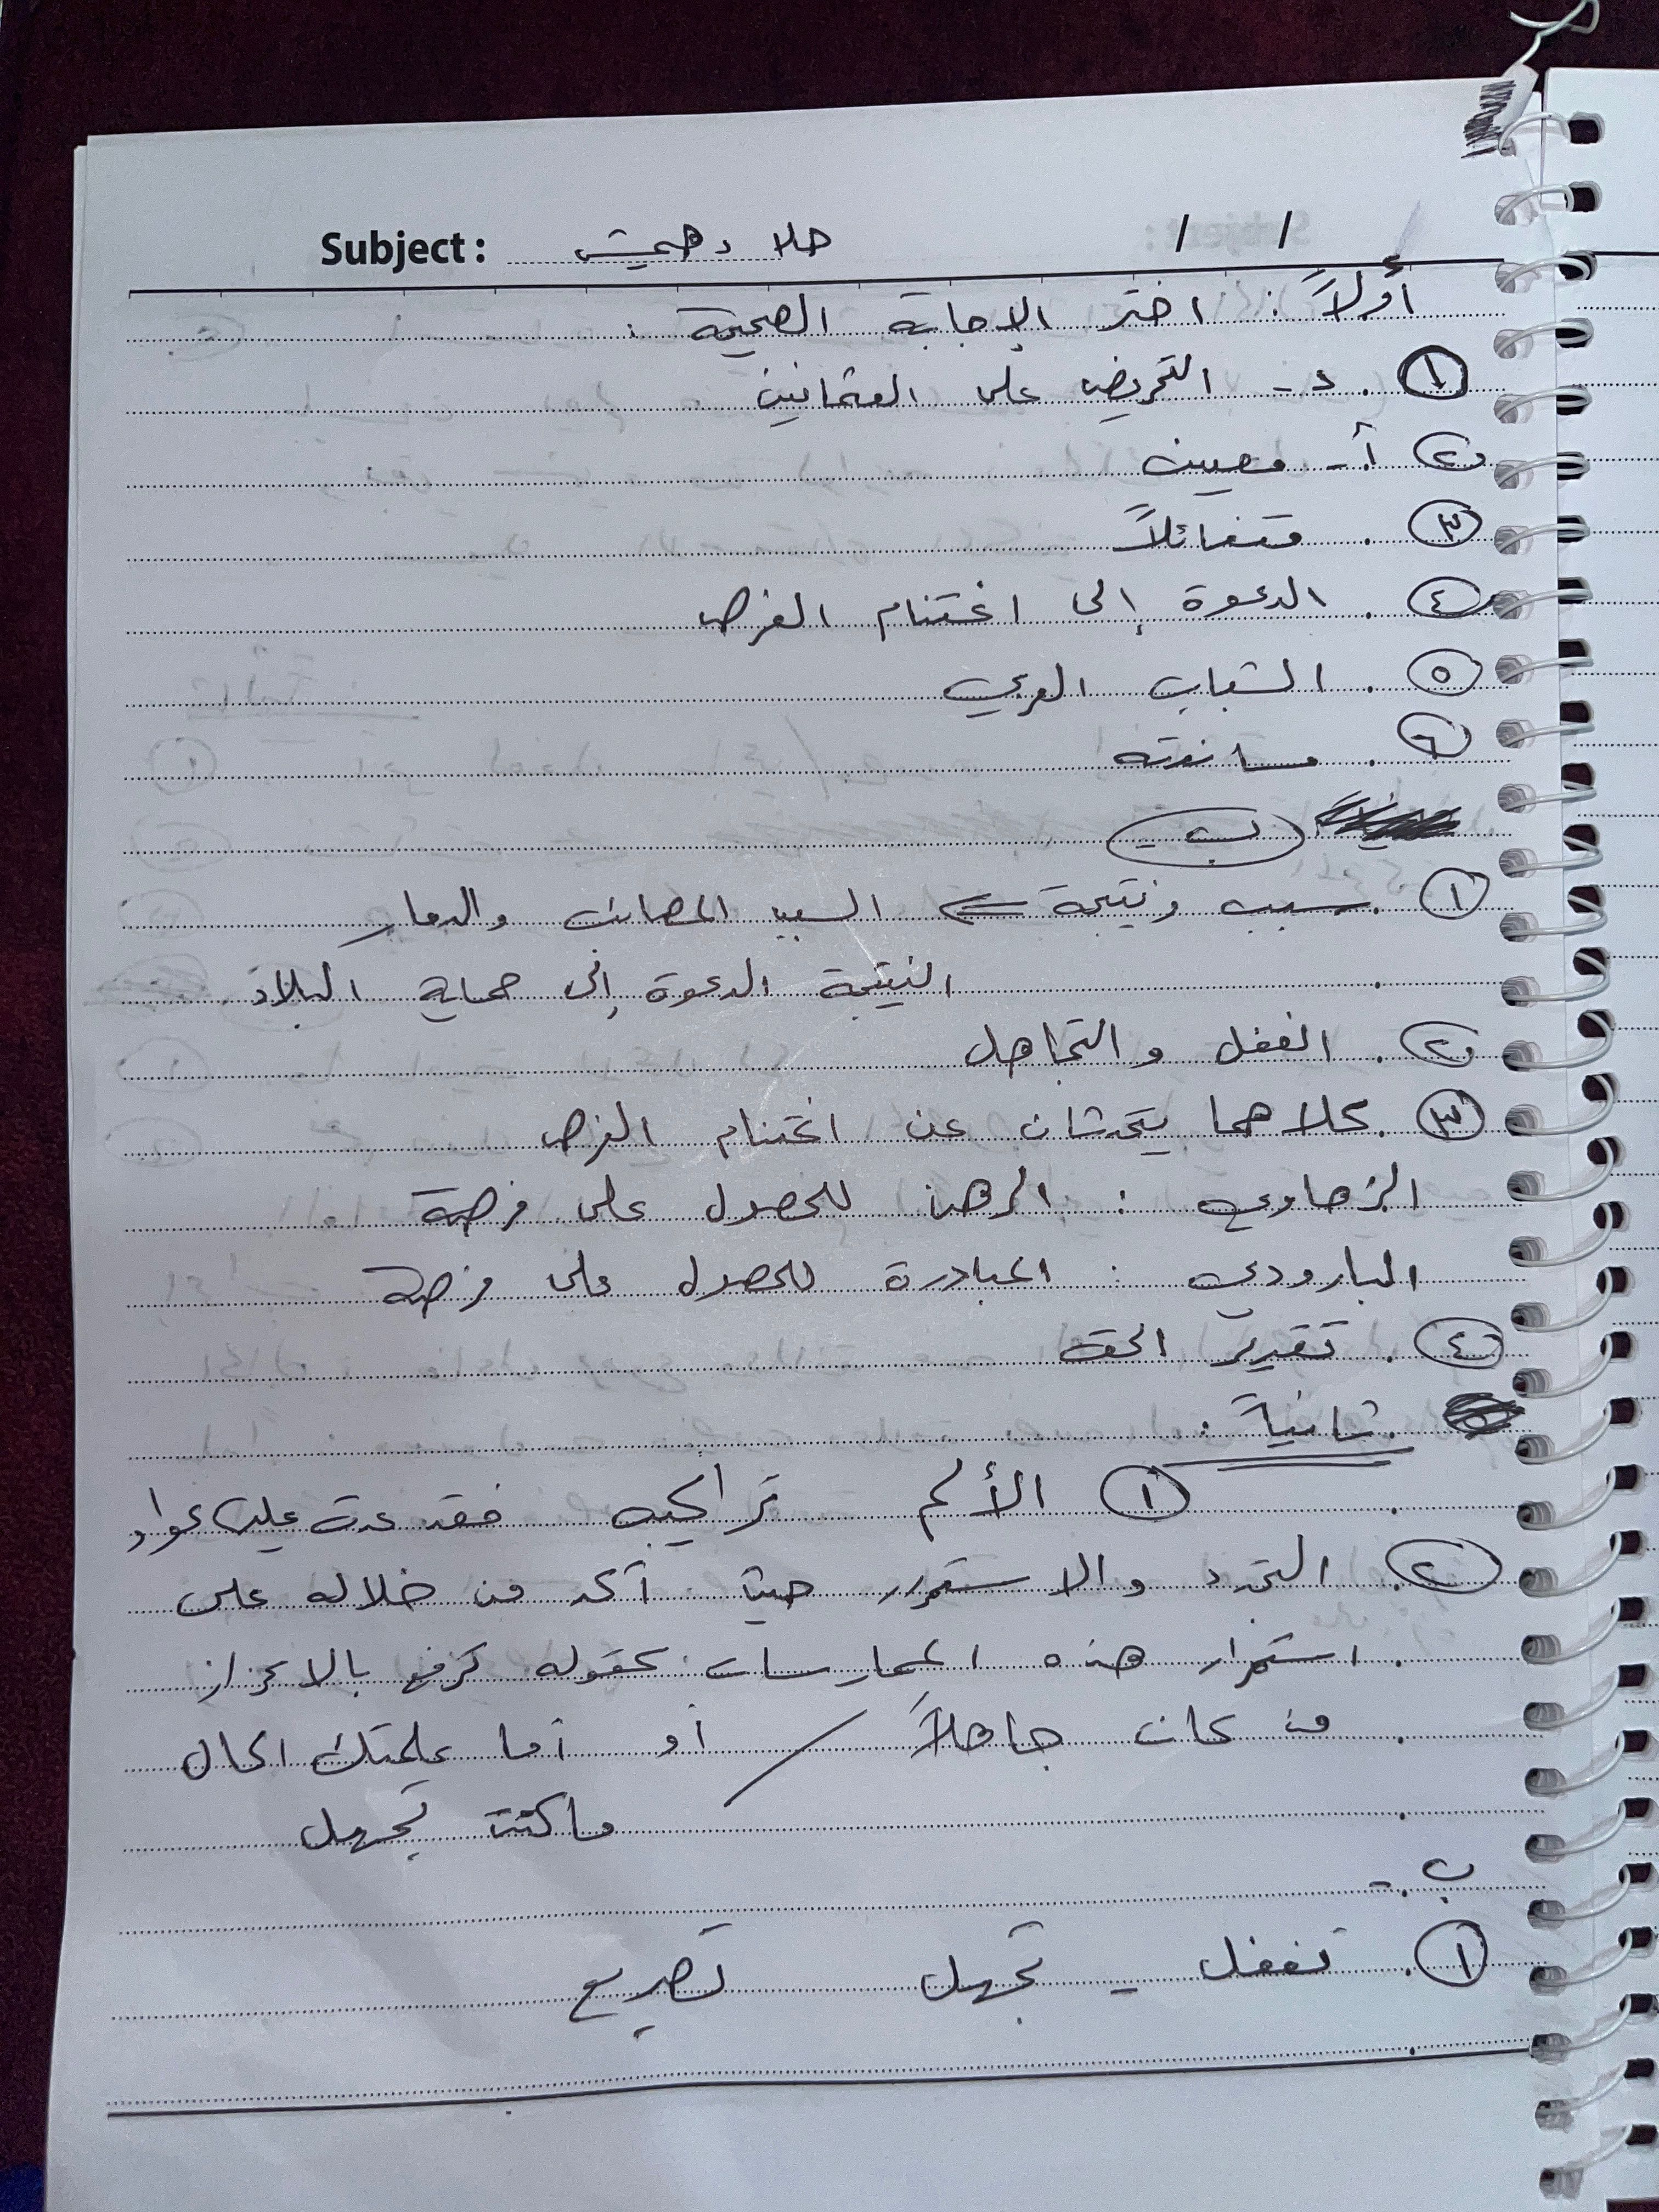 Subject: حلا دهمش / /
أولاً: اختر الإجابة الصحيحة:
١. د- التحريض على العثمانيين
٢ أ-
٣. متفائلاً
٤. الدعوة إلى اغتنام الفرص
٥. الشباب العربي
٦. مساندته
ب-
١. سبب ونتيجة <= السبب المصائب والدمار
النتيجة الدعوة إلى حماية البلاد
٢. الغفل والتجاهل
٣. كلاهما يتحدثان عن اغتنام الفرص
الزهاوي: الرهن للحصول على فرصة
البارودي: المبادرة للحصول على فرصة
٤. تقدير الحق
ثانياً:
١ الألم تراكيب فقد عدت عليك عواد
٢. التجدد والاستمرار حيث أكد من خلاله على
استمرار هذه الممارسات كقوله ترفع بالاعزاز
من كان جاهلاً / أو أما علمتك الحال
ما كنت تجهل
ب-
١. تغفل - تجهل تصريع